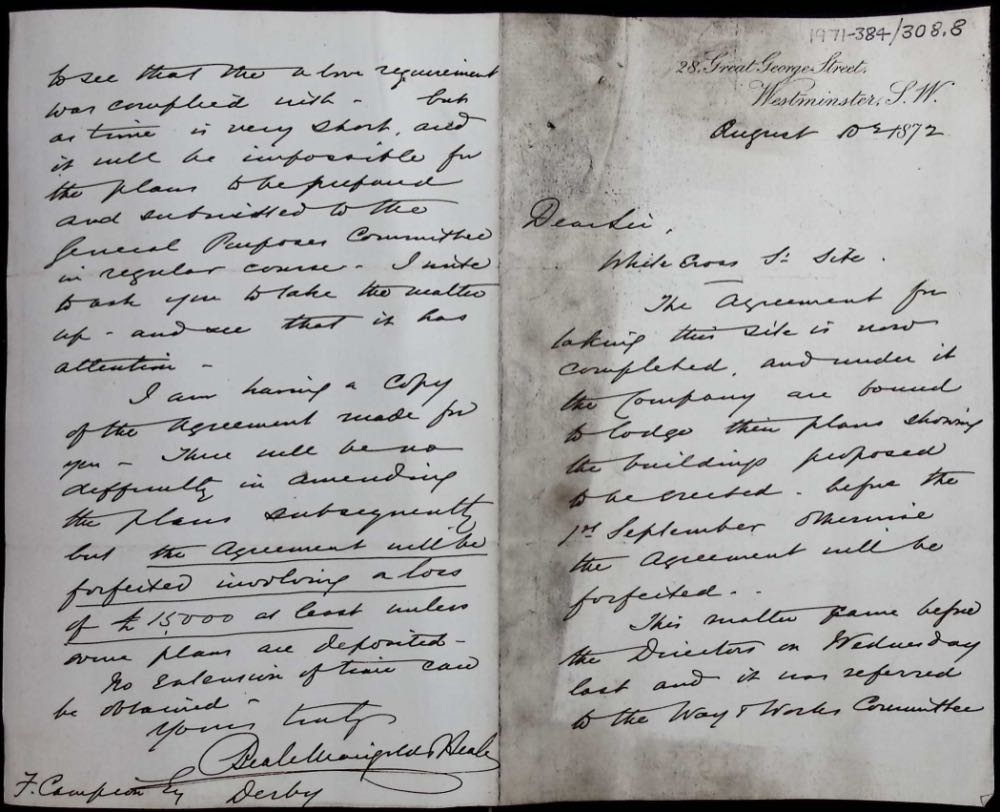 1971-384/308.8
28. Great George Street,
Westminster, S.W.
August 10th 1872
Dear Sir,
White Cross St. Site.
The Agreement for
taking this site is now
completed, and under it
the Company are bound
to lodge their plans showing
the buildings proposed
to be erected - before the
1st September otherwise
the Agreement will be
forfeited. -
This matter came before
the Directors on Wednesday
last and it was referred
to the Way & Works Committee
to see that the above requirement
was complied with - but
as time is very short, and
it will be impossible for
the plans to be prepared
and submitted to the
General Purposes Committee
in regular course - I write
to ask you to take the matter
up - and see that it has
attention -
I am having a copy
of the Agreement made for
you - There will be no
difficulty in amending
the plans subsequently
but the Agreement will be
forfeited involving a loss
of £15000 at least unless
some plans are deposited -
No Extension of time can
be obtained -
Yours truly
Beale Marigold & Beale
F. Campion Esq Derby